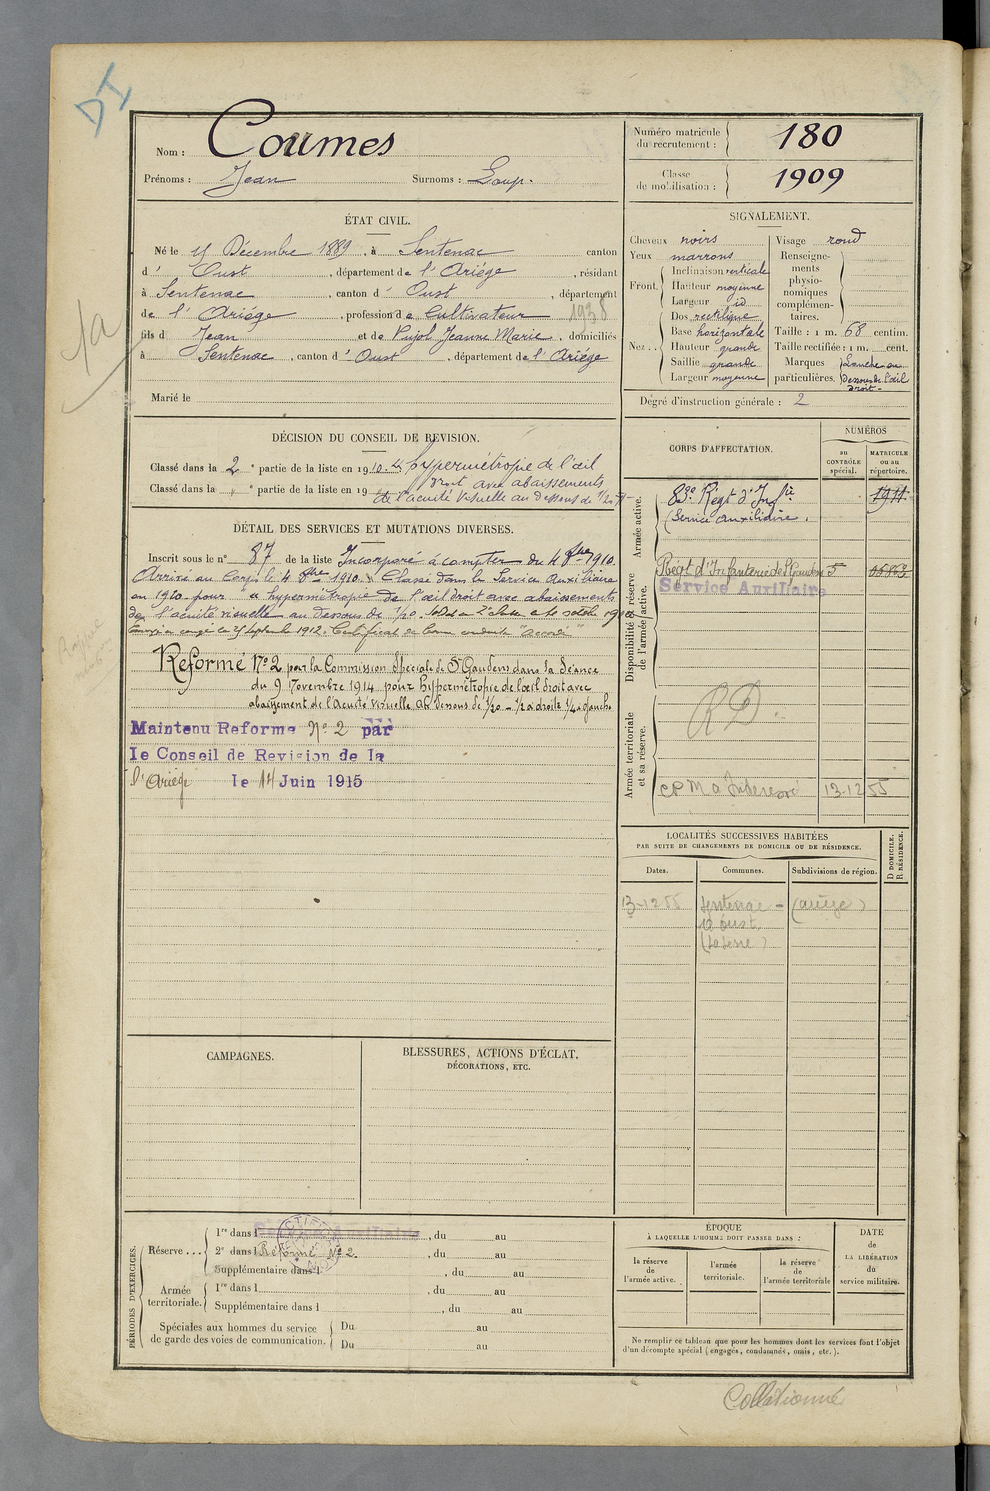 DI
Nom : Coumes
Prénoms : Jean Surnoms : Loup.
Numéro matricule du recrutement : 180
Classe de mobilisation : 1909
ÉTAT CIVIL.
Né le Décembre 1889, à Sentenac canton
d' Oust, département de l'Ariège, résidant
à Sentenac, canton d' Oust, département
de l'Ariège, profession de Cultivateur 1938
fils d Jean et de Pujol Jeanne Marie, domiciliés
à Sentenac, canton d' Oust, département de l'Ariège
Marié le
SIGNALEMENT.
Cheveux noirs
Yeux marrons
Front. Inclinaison verticale
Hauteur moyenne
Largeur id
Nez.. Dos rectiligne
Base horizontale
Hauteur grande
Saillie grande
Largeur moyenne
Visage rond
Renseignements physionomiques complémentaires.
Taille : 1 m. 68 centim.
Taille rectifiée : 1 m. cent.
Marques particulières. au dessous de l'œil droit -
Degré d'instruction générale : 2
DÉCISION DU CONSEIL DE REVISION.
Classé dans la 2 e partie de la liste en 1910. hypermétropie de l'œil
droit avec abaissements
Classé dans la " e partie de la liste en 19
de l'acuité visuelle au dessous de 1/20
DÉTAIL DES SERVICES ET MUTATIONS DIVERSES.
Inscrit sous le n° 87 de la liste Incorporé à compter du 4 8bre 1910.
Arrivé au Corps le 4 8bre 1910. Classé dans le Service Auxiliaire
en 1910 pour "hypermétropie de l'œil droit avec abaissements
de l'acuité visuelle au dessous de 1/20. Soldat de 2e classe
Envoyé en congé le 25 Septembre 1912. Certificat de bonne conduite "Accordé"
Réformé N° 2 par la Commission Spéciale de St Gaudens dans sa Séance
du 9 Novembre 1914 pour Hypermétropie de l'œil droit avec
abaissement de l'Acuité visuelle au dessous de 1/20 - 1/20 à droite 1/4 à gauche
Maintenu Reforme N° 2 par
le Conseil de Revision de la
l'Ariège le 14 Juin 1915
CORPS D'AFFECTATION.
NUMÉROS
au CONTRÔLE spécial.
MATRICULE ou au répertoire.
Armée active.
83e Régt d'Infie 1911
(Service Auxiliaire.
Disponibilité & réserve de l'armée active.
Régt d'Infanterie de St Gaudens 5
Service Auxiliaire
Armée territoriale et sa réserve.
RD.
CPM 13-12 55
LOCALITÉS SUCCESSIVES HABITÉES
PAR SUITE DE CHANGEMENTS DE DOMICILE OU DE RÉSIDENCE.
D DOMICILE. R RÉSIDENCE.
Dates. Communes. Subdivisions de région.
13-12 55 Sentenac - (ariège)
d'oust
CAMPAGNES.
BLESSURES, ACTIONS D'ÉCLAT,
DÉCORATIONS, ETC.
PÉRIODES D'EXERCICES.
Réserve ... 1re dans l Service Auxiliaire, du au
2e dans l Réformé N° 2, du au
Supplémentaire dans l, du au
Armée territoriale. 1re dans l, du au
Supplémentaire dans l, du au
Spéciales aux hommes du service
de garde des voies de communication. Du au
Du au
ÉPOQUE
À LAQUELLE L'HOMME DOIT PASSER DANS :
la réserve de l'armée active.
l'armée territoriale.
la réserve de l'armée territoriale
DATE de LA LIBÉRATION du service militaire.
Ne remplir ce tableau que pour les hommes dont les services font l'objet
d'un décompte spécial (engagés, condamnés, omis, etc.).
Collationné